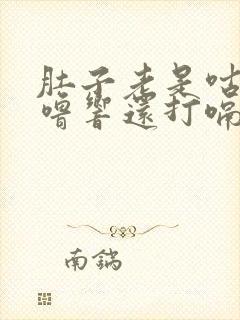 肚子老是咕
嚕響還打嗝
南鍋